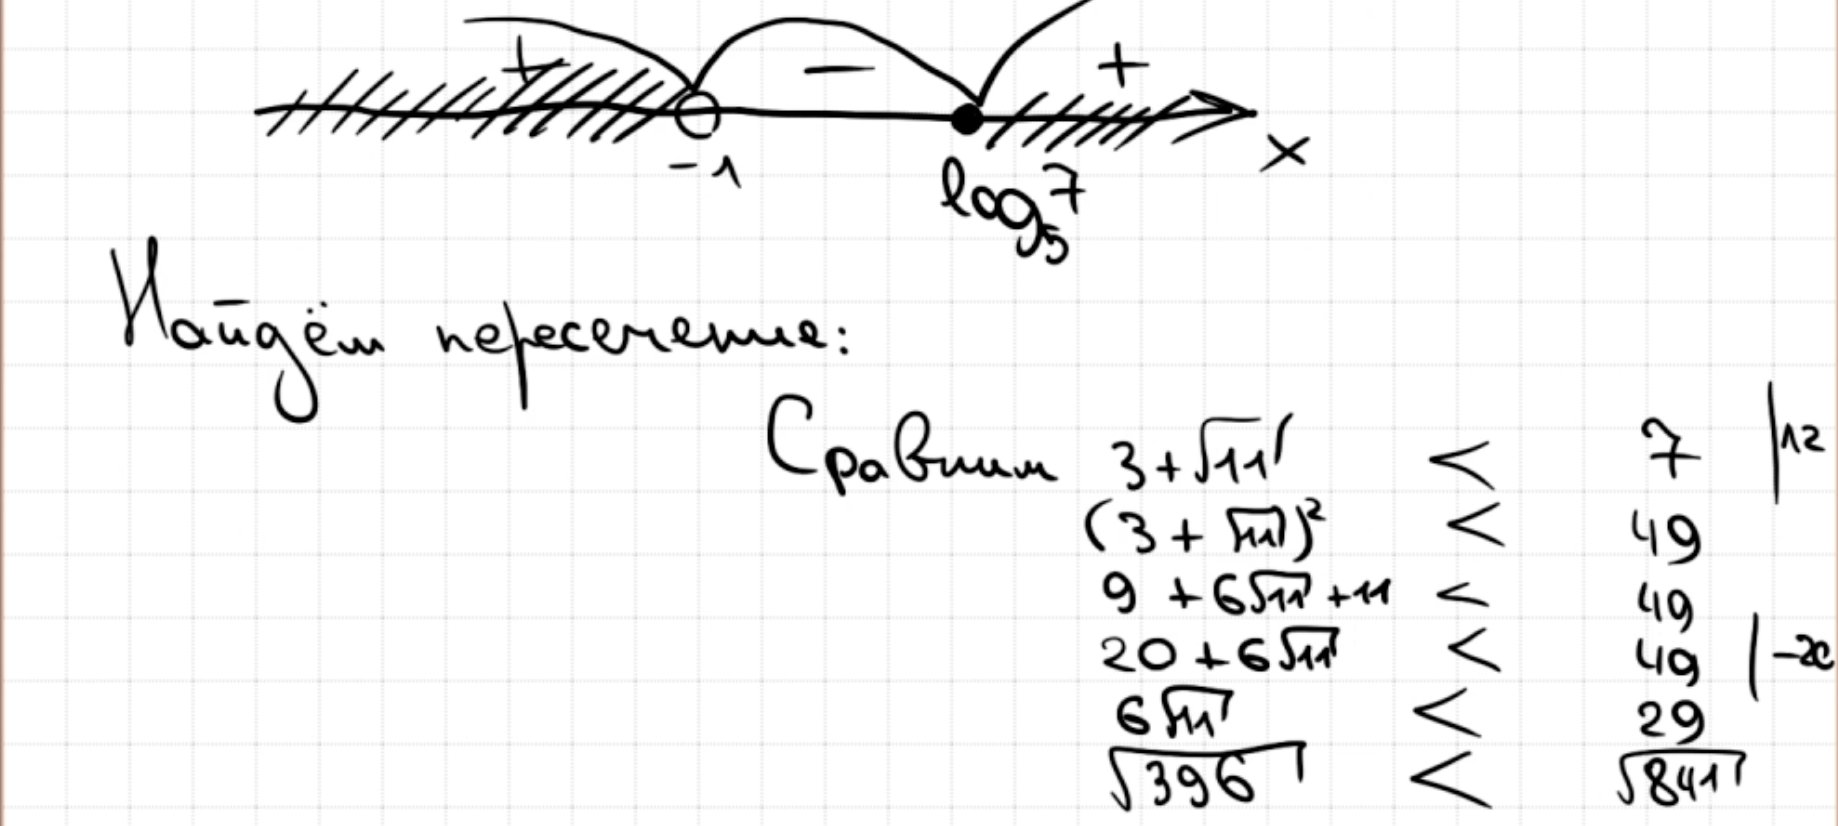 + − +
-1 log₅7 x
Найдём пересечение:
Сравним 3 + √11 < 7 |^2
(3 + √11)² < 49
9 + 6√11 + 11 < 49
20 + 6√11 < 49 | -20
6√11 < 29
√396 < √841